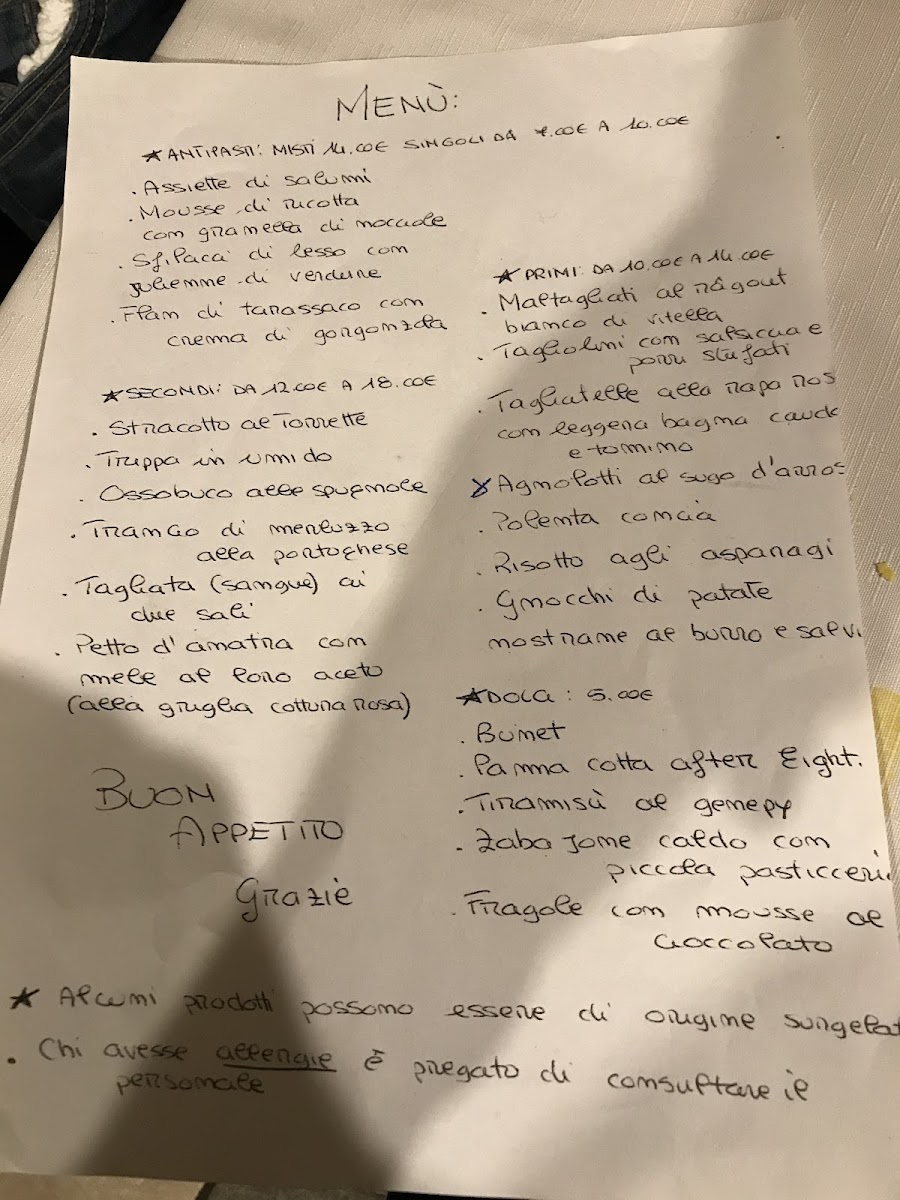 MENÙ:
★ ANTIPASTI: MISTI 14.00€ SINGOLI DA 7.00€ A 10.00€
. Assiette di salumi
. Mousse di ricotta
con granella di nocciole
. Sfilacci di lesso con
julienne di verdure
. Flan di tarassaco con
crema di gorgonzola
★ SECONDI: DA 12.00€ A 18.00€
. Stracotto al Torrette
. Trippa in umido
. Ossobuco alle spugnole
. Trancio di merluzzo
alla portoghese
. Tagliata (sangue) ai
due sali
. Petto d'anatra con
mele al loro aceto
(alla griglia cottura rosa)
BUON
APPETITO
Grazie
★ PRIMI: DA 10.00€ A 14.00€
. Maltagliati al ragout
bianco di vitella
. Tagliolini con salsiccia e
porri stufati
. Tagliatelle alla rapa ros
con leggera bagna cauda
e tomino
. Agnolotti al sugo d'arros
. Polenta concia
. Risotto agli asparagi
. Gnocchi di patate
nostrane al burro e salvi
★ DOLCI: 5.00€
. Bunet
. Panna cotta after Eight.
. Tiramisù al genepy
. Zabajone caldo con
piccola pasticceri
. Fragole con mousse al
cioccolato
★ Alcuni prodotti possono essere di origine surgelat
. Chi avesse allergie è pregato di consultare il
personale